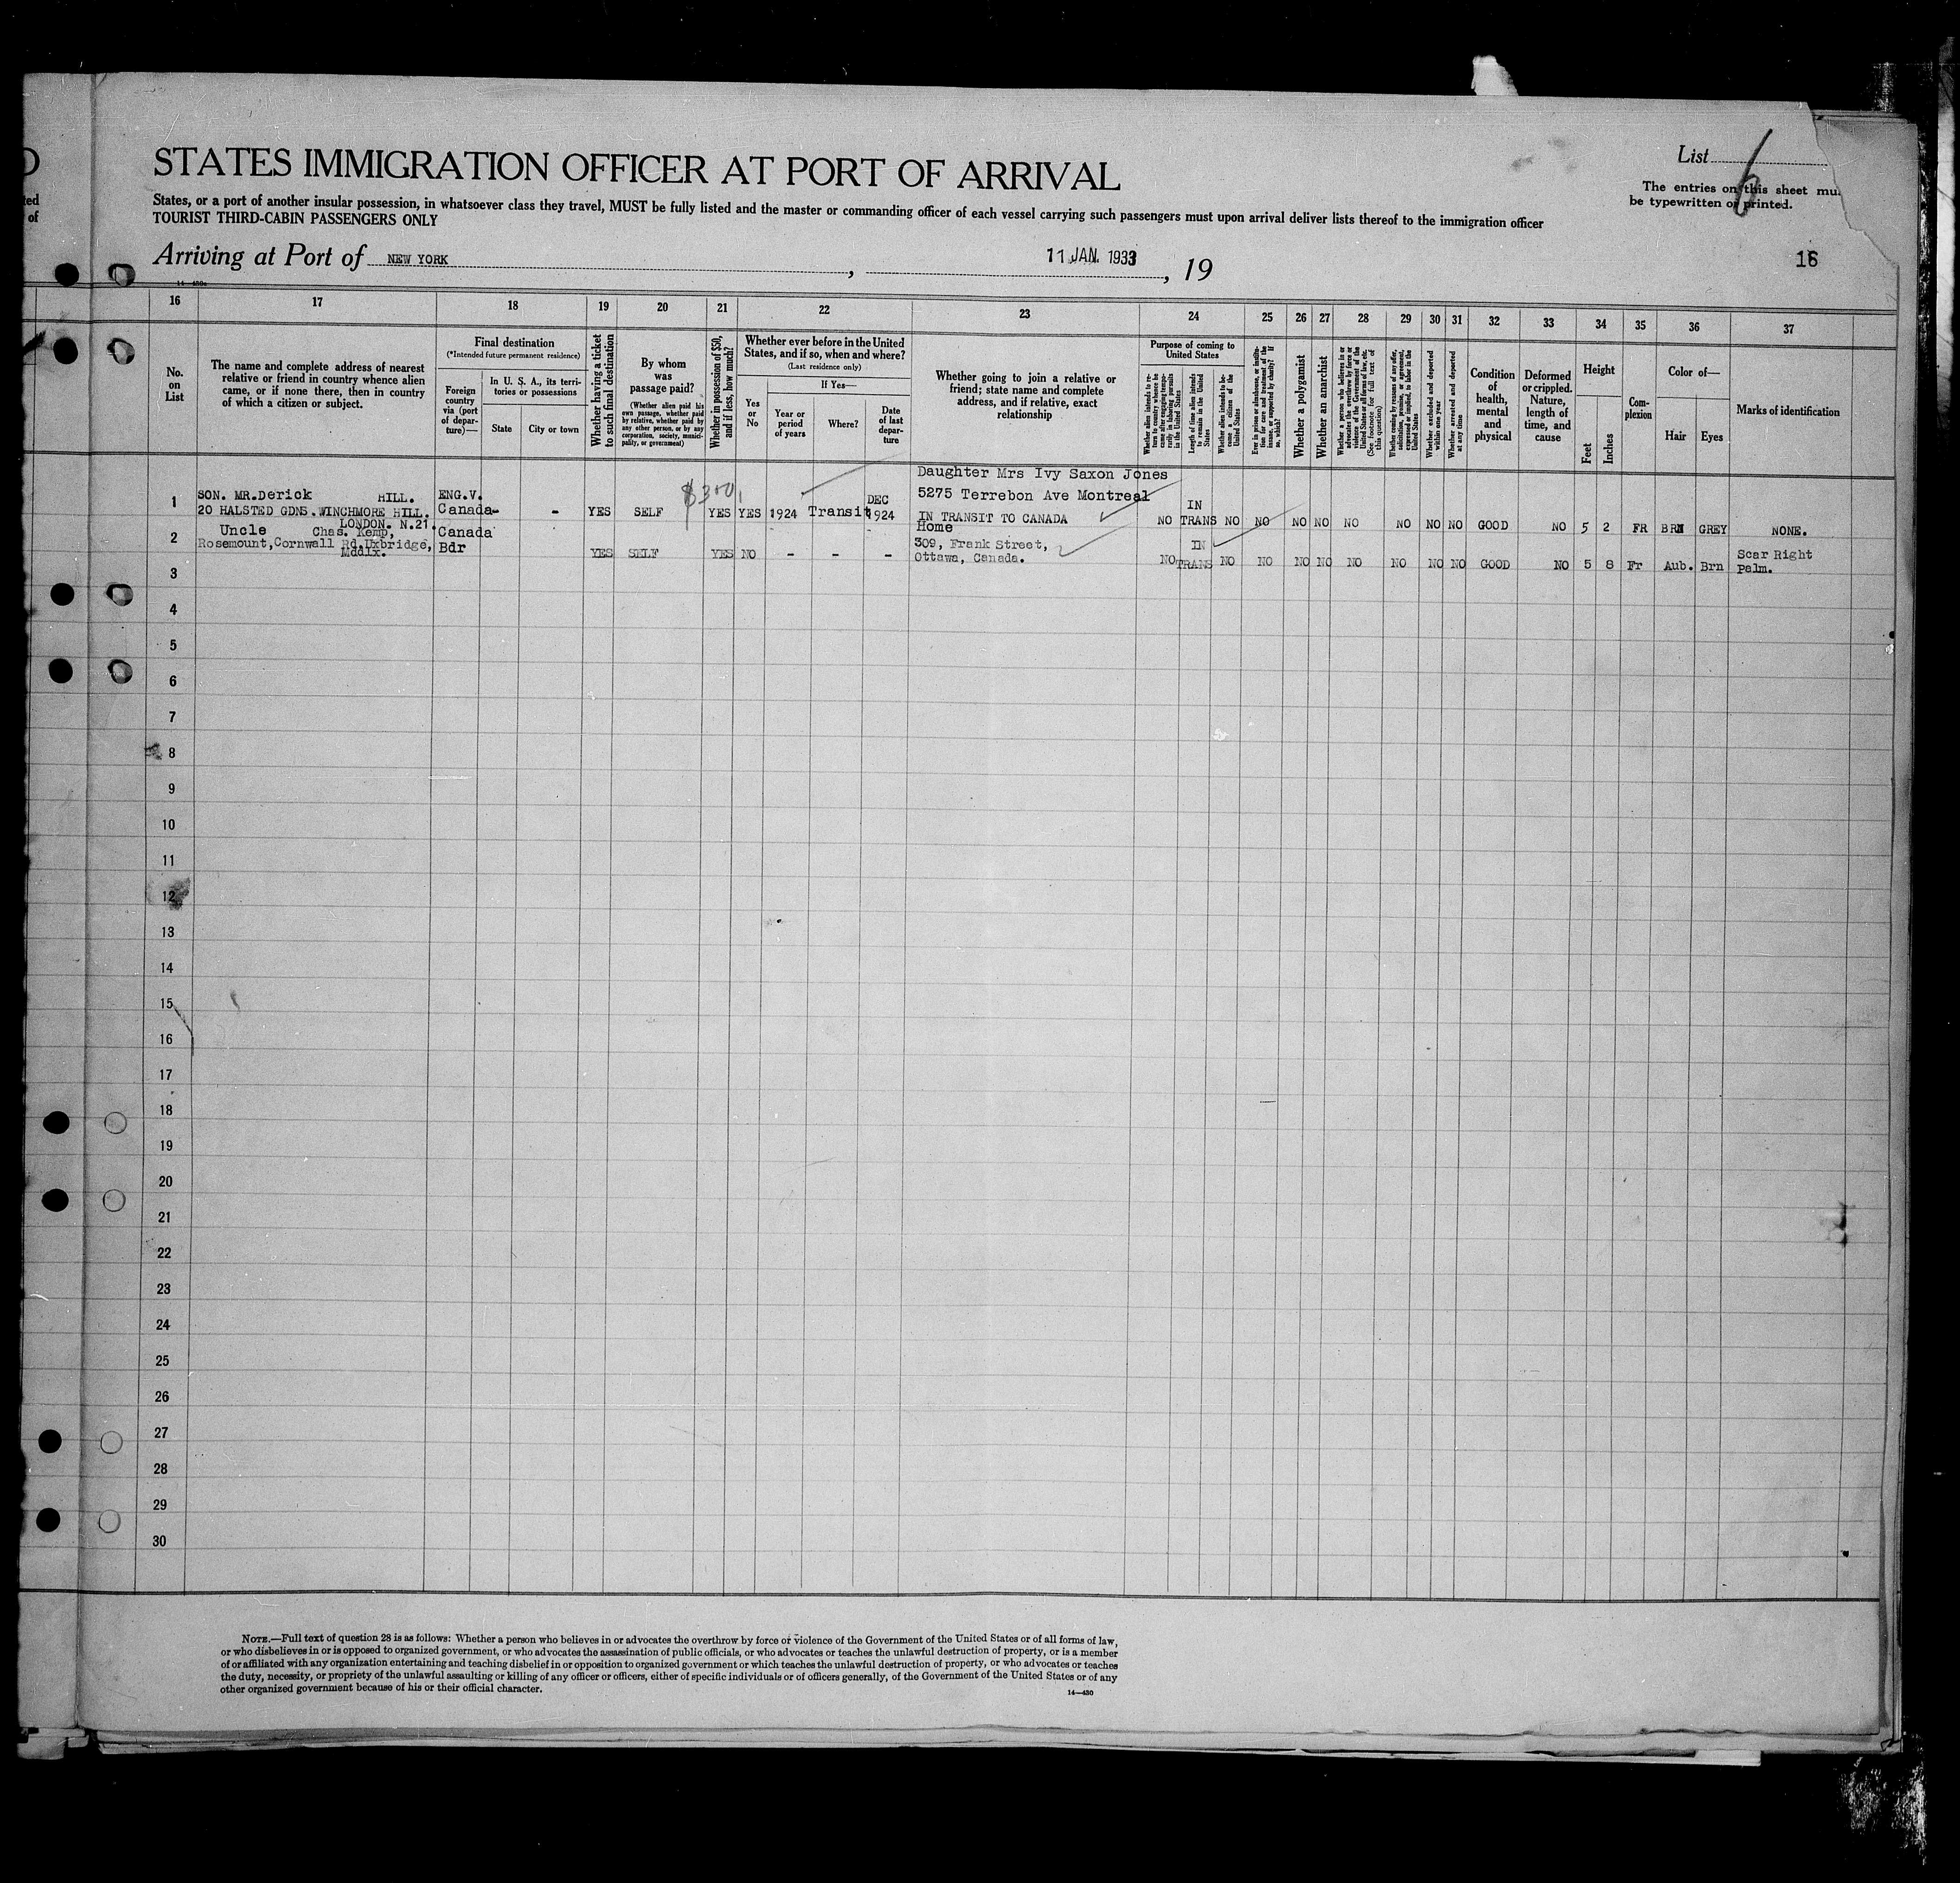 STATES IMMIGRATION OFFICER AT PORT OF ARRIVAL
List 6
The entries on this sheet mu
be typewritten or printed.
States, or a port of another insular possession, in whatsoever class they travel, MUST be fully listed and the master or commanding officer of each vessel carrying such passengers must upon arrival deliver lists thereof to the immigration officer
TOURIST THIRD-CABIN PASSENGERS ONLY
Arriving at Port of NEW YORK, 11 JAN. 1933, 19
16
16 17 18 19 20 21 22 23 24 25 26 27 28 29 30 31 32 33 34 35 36 37
No. on List
The name and complete address of nearest
relative or friend in country whence alien
came, or if none there, then in country
of which a citizen or subject.
Final destination
(*Intended future permanent residence)
Foreign country via (port of departure)—
In U. S. A., its territories or possessions
State
City or town
Whether having a ticket to such final destination
By whom was passage paid?
(Whether alien paid his own passage, whether paid by relative, whether paid by any other person, or by any corporation, society, municipality, or government)
Whether in possession of $50, and if less, how much?
Whether ever before in the United States, and if so, when and where?
(Last residence only)
Yes or No
If Yes—
Year or period of years
Where?
Date of last departure
Whether going to join a relative or
friend; state name and complete
address, and if relative, exact
relationship
Purpose of coming to United States
Whether alien intends to return to country whence he came after engaging temporarily in laboring pursuits in the United States
Length of time alien intends to remain in the United States
Whether alien intends to become a citizen of the United States
Ever in prison or almshouse, or institution for care and treatment of the insane, or supported by charity? If so, which?
Whether a polygamist
Whether an anarchist
Whether a person who believes in or advocates the overthrow by force or violence of the Government of the United States or all forms of law, etc. (See footnote for full text of this question)
Whether coming by reasons of any offer, solicitation, promise, or agreement, expressed or implied, to labor in the United States
Whether excluded and deported within one year
Whether arrested and deported at any time
Condition of health, mental and physical
Deformed or crippled. Nature, length of time, and cause
Height
Feet
Inches
Complexion
Color of—
Hair
Eyes
Marks of identification
1 SON. MR.Derick HILL.
20 HALSTED GDNS.WINCHMORE HILL.
LONDON. N.21.
ENG.V.
Canada- - YES SELF $300 YES YES 1924 Transit DEC 1924
Daughter Mrs Ivy Saxon Jones
5275 Terrebon Ave Montreal
IN TRANSIT TO CANADA
NO IN TRANS NO NO NO NO NO NO NO NO GOOD NO 5 2 FR BRN GREY NONE.
2 Uncle Chas. Kemp,
Rosemount,Cornwall Rd.Uxbridge,
Mddlx.
Canada
Bdr YES SELF YES NO - - -
Home
309, Frank Street,
Ottawa, Canada.
NO IN TRANS NO NO NO NO NO NO NO NO GOOD NO 5 8 Fr Aub. Brn Scar Right
palm.
3
4
5
6
7
8
9
10
11
12
13
14
15
16
17
18
19
20
21
22
23
24
25
26
27
28
29
30
NOTE.—Full text of question 28 is as follows: Whether a person who believes in or advocates the overthrow by force or violence of the Government of the United States or of all forms of law,
or who disbelieves in or is opposed to organized government, or who advocates the assassination of public officials, or who advocates or teaches the unlawful destruction of property, or is a member
of or affiliated with any organization entertaining and teaching disbelief in or opposition to organized government or which teaches the unlawful destruction of property, or who advocates or teaches
the duty, necessity, or propriety of the unlawful assaulting or killing of any officer or officers, either of specific individuals or of officers generally, of the Government of the United States or of any
other organized government because of his or their official character.
14—430